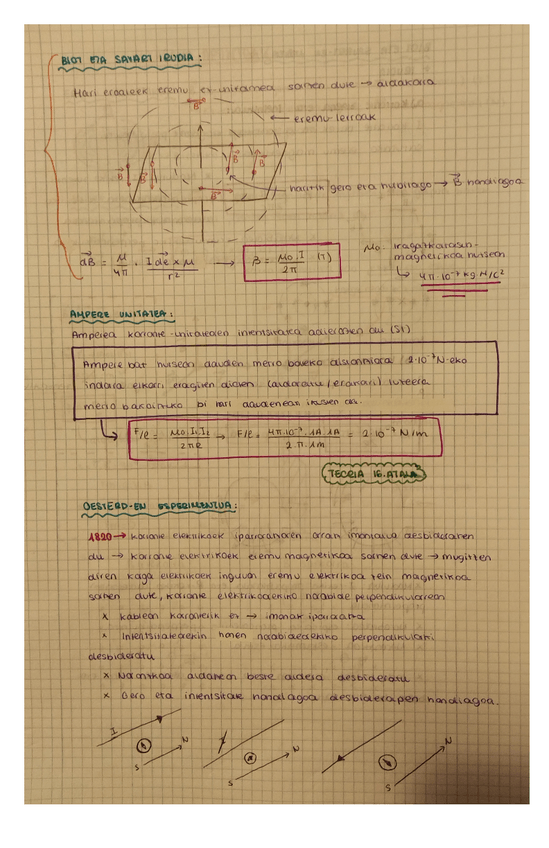 BIOT ETA SAVART IRUDIA:
Hari eroaleek eremu ez-uniformea sortzen dute → aldakorra
B
← eremu-lerroak
B B B B B
haritik gero eta hurbilago → B handiagoa
dB = μ/4π · I dl x μ / r² → B = μ₀·I / 2π (T)
μ₀: iragazkortasun-
magnetikoa hutsean
↳ 4π·10⁻⁷ kg M/C²
AMPERE UNITATEA:
Amperea korronte-unitatearen intentsitatea adierazten du (SI)
Ampere bat hutsean dauden metro bateko distantziara 2·10⁻⁷ N-eko
indarra elkarri eragiten dioten (aldaratu/erakarri) luzeera
metro bakoitzeko bi hari daudenean ikusten da.
F/l = μ₀·I₁·I₂ / 2πR → F/l = 4π·10⁻⁷·1A·1A / 2·π·1m = 2·10⁻⁷ N/m
TEORIA 16.ATALA
OESTERD-EN ESPERIMENTUA:
1820 → korronte elektrikoek iparrorratzaren orratz imantatua desbideratzen
du → korronte elektrikoek eremu magnetikoa sortzen dute → mugitzen
diren kaga elektrikoek inguruan eremu elektrikoa zein magnetikoa
sortzen dute, korronte elektrikoarekiko norabide perpendikularrean
x kablean korronterik ez → imanak iparrarantz
x Intentsitatearekin honen norabidearekiko perpendikularki
desbideratu
x Norantzkoa aldatzean beste aldera desbideratu
x Gero eta intentsitate handiagoa desbiderapen handiagoa.
I N S N S N S